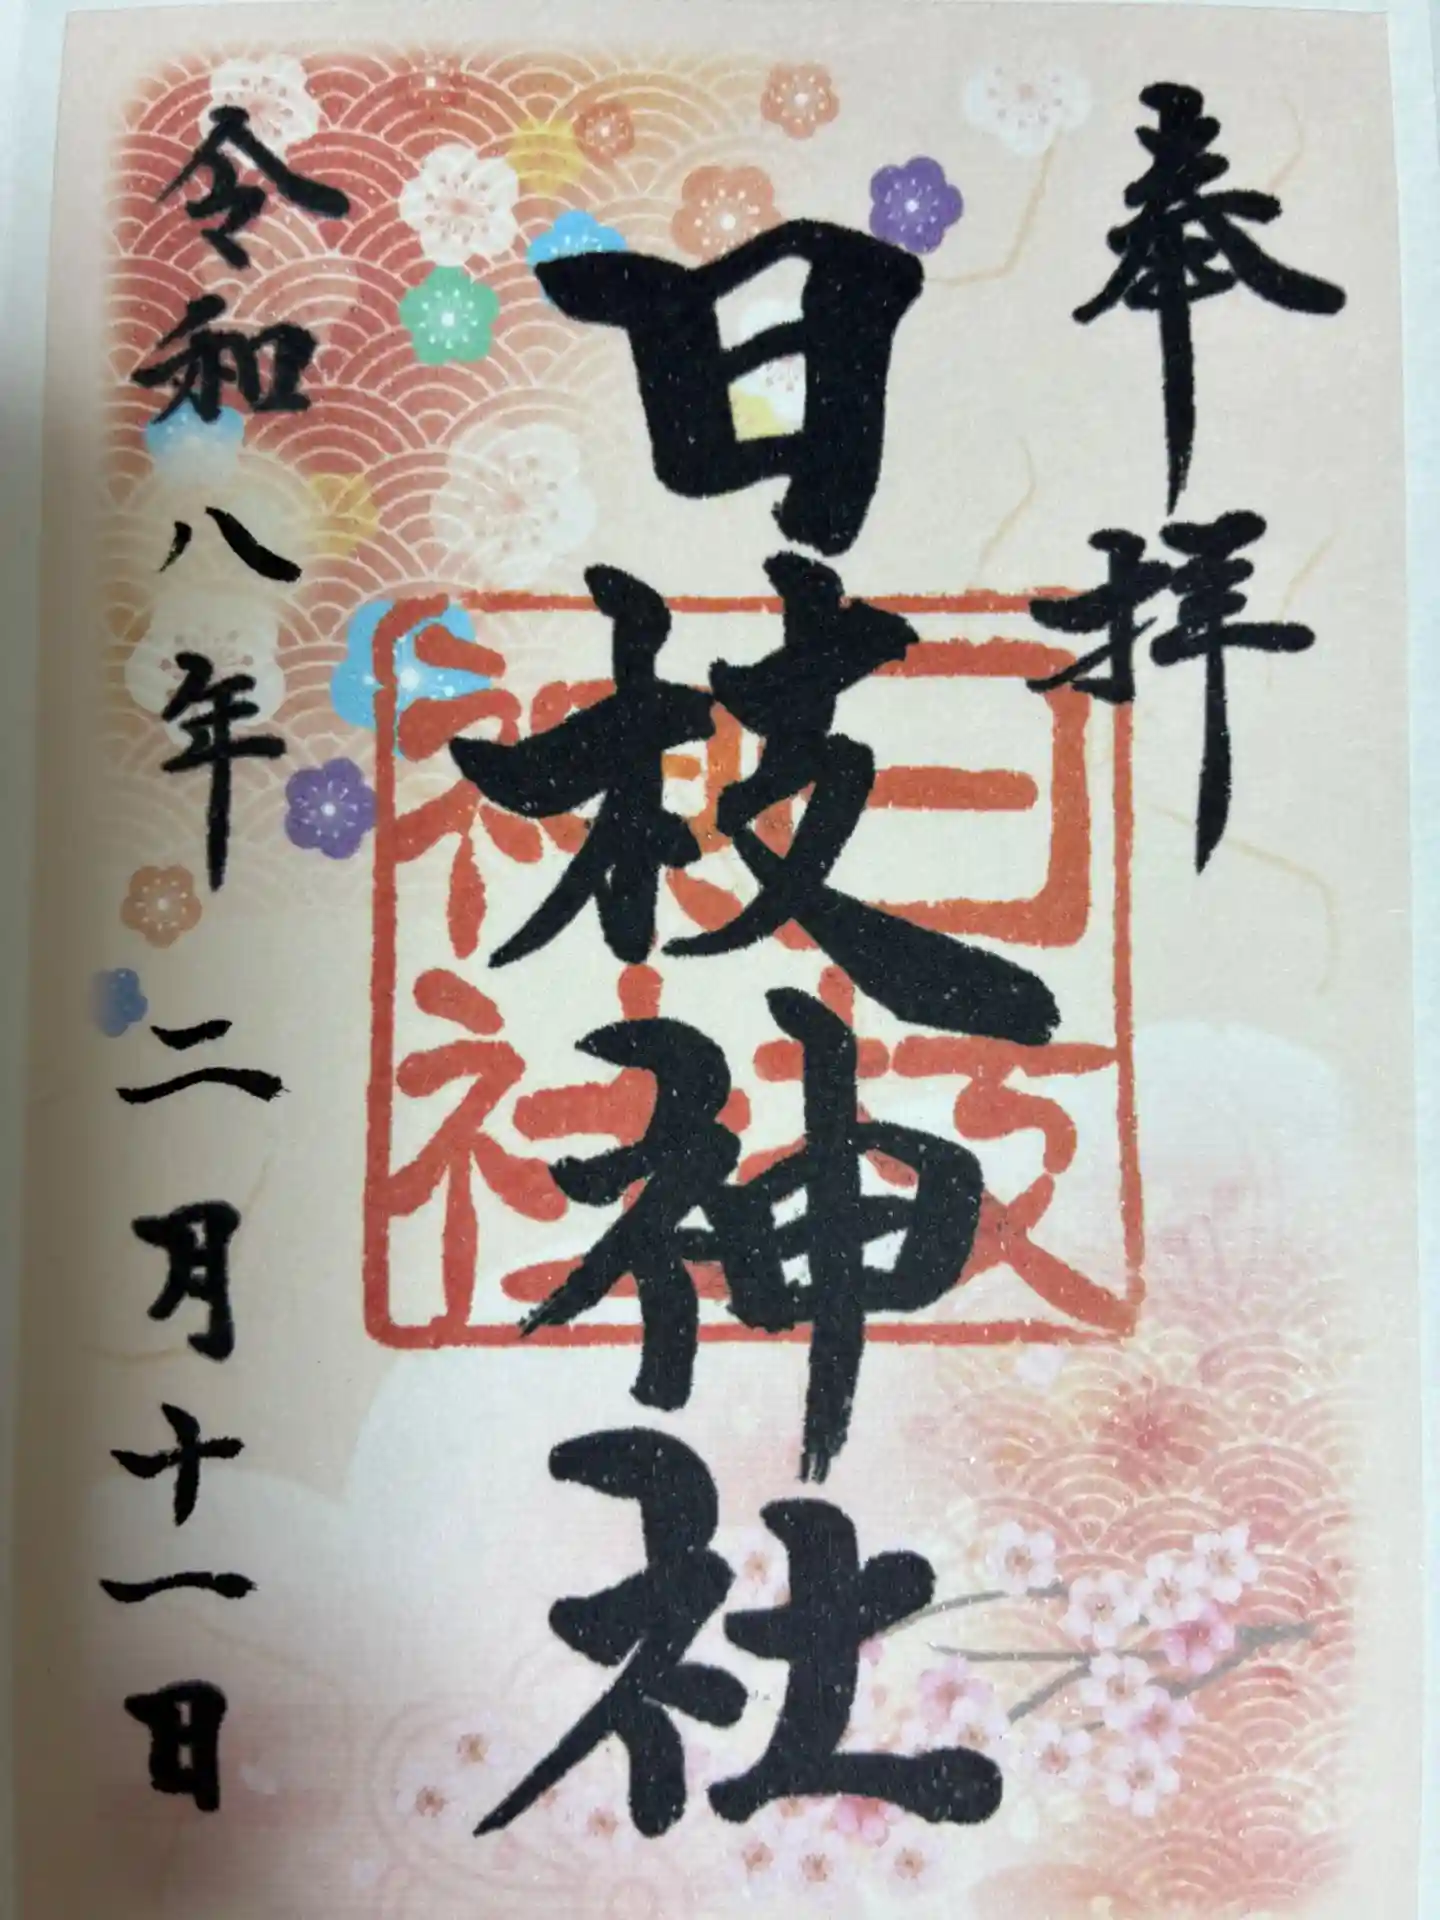 奉拝
日枝神社
日枝
神社
令和八年二月十一日